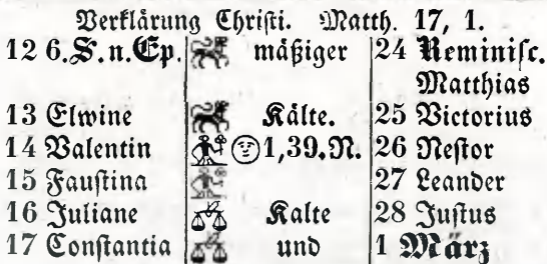 Verklärung Christi. Matth. 17, 1.
12 6. S. n. Ep. mäßiger 24 Reminisc.
Matthias
13 Elwine Kälte. 25 Victorius
14 Valentin 1,39. N. 26 Nestor
15 Faustina 27 Leander
16 Juliane Kalte 28 Justus
17 Constantia und 1 März